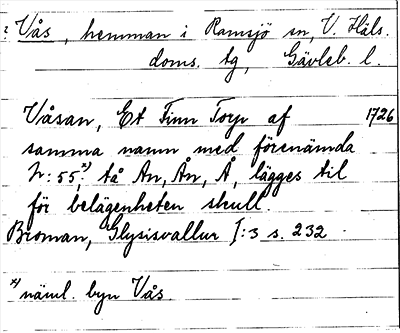 Vås, hemman i Ramsjö sn, V. Häls.
doms. tg, Gävleb. l.
Våsan, Et Finn Torp af 1726
samma namn med förenämda
N: 55,ˣ⁾ tå An, Ån, Å, lägges til
för belägenheten skull.
Broman, Glysisvallur I:3 s. 232.
ˣ⁾ näml. byn Vås.